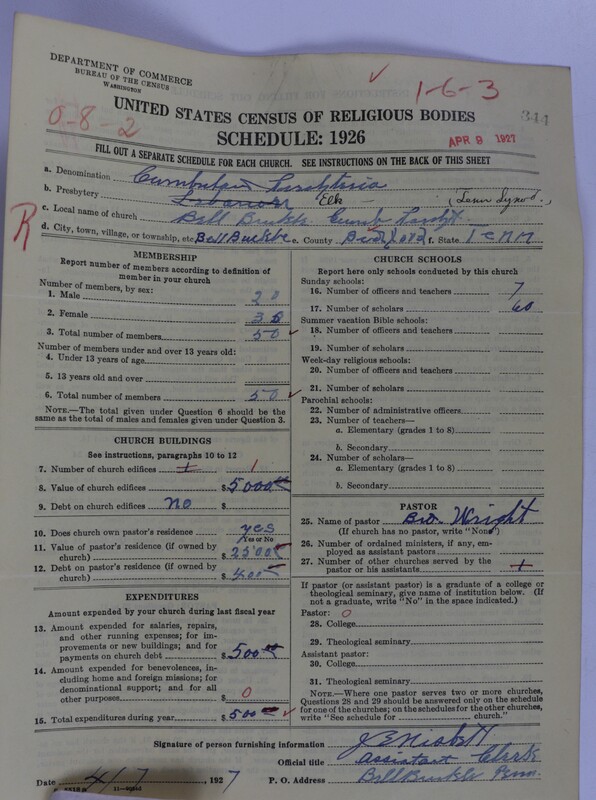 DEPARTMENT OF COMMERCE
BUREAU OF THE CENSUS
WASHINGTON
1-6-3
344
0-8-2
UNITED STATES CENSUS OF RELIGIOUS BODIES
SCHEDULE: 1926
APR 9 1927
FILL OUT A SEPARATE SCHEDULE FOR EACH CHURCH. SEE INSTRUCTIONS ON THE BACK OF THIS SHEET
a. Denomination
b. Presbytery Lebanon Elk -
c. Local name of church Bell Buckle Cumb
R
d. City, town, village, or township, etc Bell Buckle e. County Bedford f. State Tenn
MEMBERSHIP
Report number of members according to definition of member in your church
Number of members, by sex:
1. Male 20
2. Female 30
3. Total number of members 50
Number of members under and over 13 years old:
4. Under 13 years of age
5. 13 years old and over
6. Total number of members 50
NOTE.—The total given under Question 6 should be the same as the total of males and females given under Question 3.
CHURCH BUILDINGS
See instructions, paragraphs 10 to 12
7. Number of church edifices 1 1
8. Value of church edifices $5000.00
9. Debt on church edifices no $
10. Does church own pastor's residence yes
Yes or No
11. Value of pastor's residence (if owned by
church) $2500
12. Debt on pastor's residence (if owned by
church) $400
EXPENDITURES
Amount expended by your church during last fiscal year
13. Amount expended for salaries, repairs,
and other running expenses; for im-
provements or new buildings; and for
payments on church debt $500.00
14. Amount expended for benevolences, in-
cluding home and foreign missions; for
denominational support; and for all
other purposes $0
15. Total expenditures during year $500.00
CHURCH SCHOOLS
Report here only schools conducted by this church
Sunday schools:
16. Number of officers and teachers 7
17. Number of scholars 60
Summer vacation Bible schools:
18. Number of officers and teachers
19. Number of scholars
Week-day religious schools:
20. Number of officers and teachers
21. Number of scholars
Parochial schools:
22. Number of administrative officers
23. Number of teachers—
a. Elementary (grades 1 to 8)
b. Secondary
24. Number of scholars—
a. Elementary (grades 1 to 8)
b. Secondary
PASTOR
25. Name of pastor Bro. Wright
(If church has no pastor, write "None")
26. Number of ordained ministers, if any, em-
ployed as assistant pastors
27. Number of other churches served by the
pastor or his assistants 1
If pastor (or assistant pastor) is a graduate of a college or
theological seminary, give name of institution below. (If
not a graduate, write "No" in the space indicated.)
Pastor: 0
28. College
29. Theological seminary
Assistant pastor:
30. College
31. Theological seminary
NOTE.—Where one pastor serves two or more churches,
Questions 28 and 29 should be answered only on the schedule
for one of the churches; on the schedules for the other churches,
write "See schedule for church."
Signature of person furnishing information J E Nisbett
Official title Assistant Clerk
Date 4/7, 1927 P. O. Address Bell Buckle Tenn.